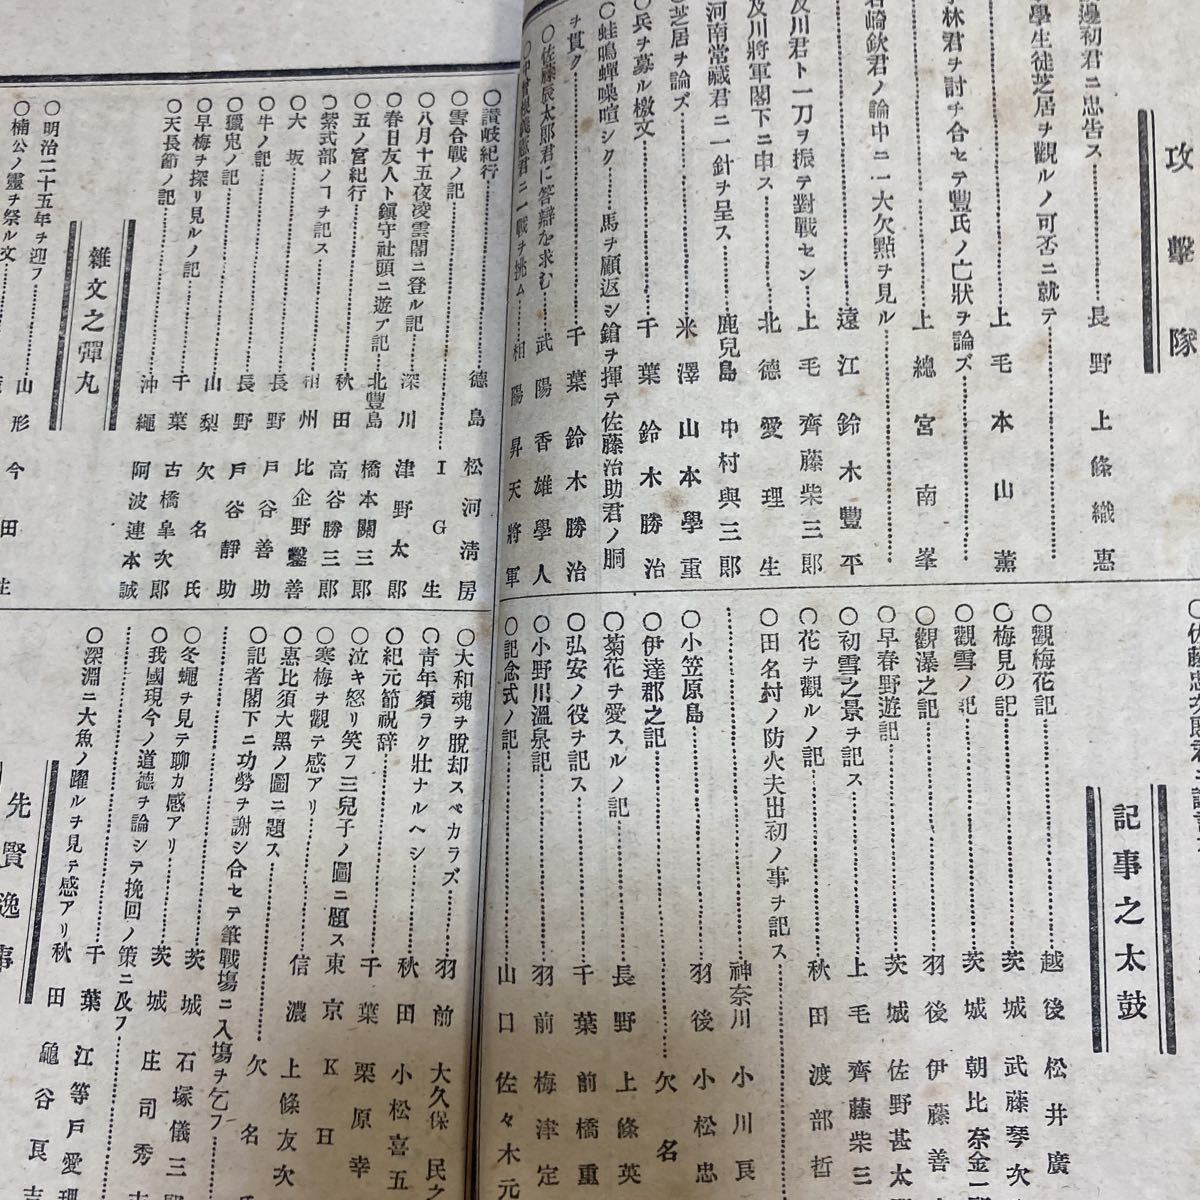 攻擊隊
邊初君ニ忠告ス 長野 上條織惠
學生徒芝居ヲ觀ルノ可否ニ就テ
上毛 本山薰
林君ヲ討チ合セテ豐氏ノ亡狀ヲ論ズ
上總 宮南峯
崎欽君ノ論中ニ一大欠點ヲ見ル
遠江 鈴木豐平
及川君ト一刀ヲ振テ對戰セン 上毛 齊藤柴三郎
及川將軍閣下ニ申ス 北德 愛理生
河南常藏君ニ一針ヲ呈ス 鹿兒島 中村與三郎
○芝居ヲ論ズ 米澤 山本學重
○兵ヲ募ル檄文 千葉 鈴木勝治
○蛙鳴蟬噪喧シク……馬ヲ顧返シ鎗ヲ揮テ佐藤治助君ノ胴
ヲ貫ク 千葉 鈴木勝治
○佐藤辰太郎君に答辯を求む 武陽 香雄學人
君ニ一戰ヲ挑ム 相陽 昇天將軍
記事之太鼓
○觀梅花記 越後 松井廣
○梅見の記 茨城 武藤琴次
○觀雪ノ記 茨城 朝比奈金一
○觀瀑之記 羽後 伊藤善
○早春野遊記 茨城 佐野甚太
○初雪之景ヲ記ス 上毛 齊藤柴三
○花ヲ觀ルノ記 秋田 渡部哲
○田名村ノ防火夫出初ノ事ヲ記ス
神奈川 小川長
○小笠原島 羽後 小松忠
○伊達郡之記 欠名
○菊花ヲ愛スルノ記 長野 上條英
○弘安ノ役ヲ記ス 千葉 前橋重
○小野川溫泉記 羽前 梅津定
○記念式ノ記 山口 佐々木元
○讃岐紀行 德島 松河清房
○雪合戰ノ記 IG生
○八月十五夜凌雲閣ニ登ル記 深川 津野太郎
○春日友人ト鎭守社頭ニ遊ブ記 北豐島 橋本關三郎
○五ノ宮紀行 秋田 高谷勝三郎
○紫式部ノヿヲ記ス 相州 比企野鑿善
○大坂 長野 戸谷善助
○牛ノ記 長野 戸谷靜助
○獵兎ノ記 山梨 欠名氏
○早梅ヲ探リ見ルノ記 千葉 古橋皐次郎
○天長節ノ記 沖繩 阿波連本誠
雜文之彈丸
○明治二十五年ヲ迎フ 山形 今田生
○楠公ノ靈ヲ祭ル文
○大和魂ヲ脫却スベカラズ 羽前 大久保民之
○青年須ラク壯ナルヘシ 秋田 小松喜五
○紀元節祝辞 千葉 栗原幸
○泣キ怒リ笑フ三兒子ノ圖ニ題ス 東京 KH
○寒梅ヲ觀テ感アリ 信濃 上條友次
○惠比須大黑ノ圖ニ題ス 欠名
○記者閣下ニ功勞ヲ謝シ合セテ筆戰塲ニ入塲ヲ乞フ
茨城 石塚儀三
○冬蠅ヲ見テ聊カ感アリ 茨城 庄司秀
○我國現今ノ道德ヲ論シテ挽回ノ策ニ及フ
千葉 江等戸愛理
○深淵ニ大魚ノ躍ルヲ見テ感アリ 秋田 龜谷良吉
先賢逸事